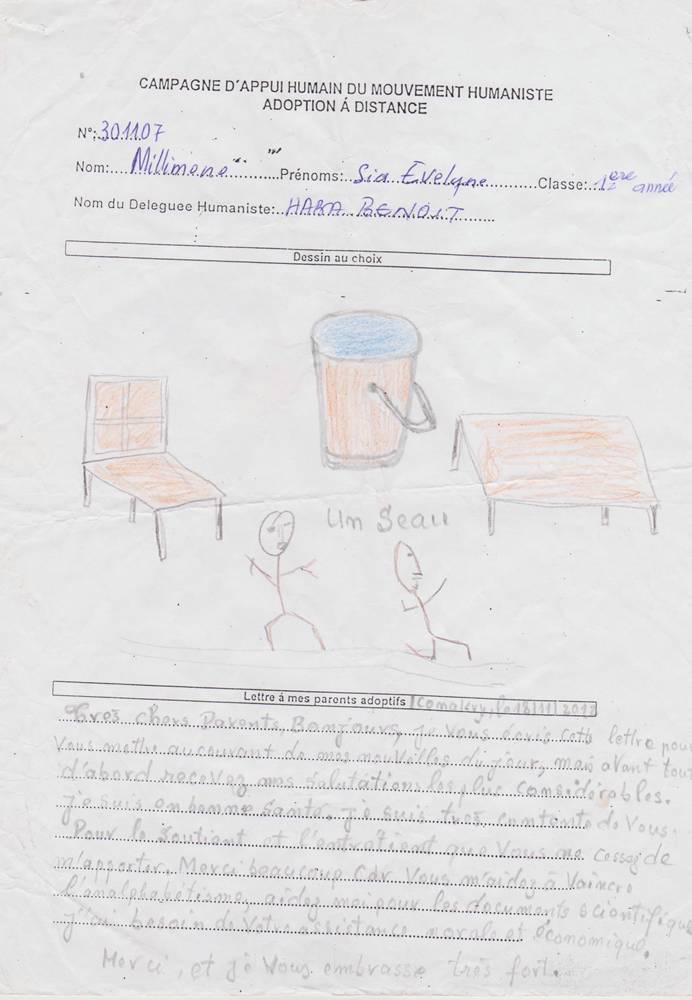 CAMPAGNE D'APPUI HUMAIN DU MOUVEMENT HUMANISTE
ADOPTION Á DISTANCE
N°: 301107
Nom: Millimono Prénoms: Sia Evelyne Classe: 1ère année
Nom du Deleguee Humaniste: HABA BENOIT
Dessin au choix
Un Seau
Lettre á mes parents adoptifs Conakry, le 18/11/
Tres chers Parents, Bonjours, je vous ecris cette lettre pour
Vous mettre au courant de mes nouvelles du jour, mais avant tout
d'abord recevez mes salutations les plus considérables.
je suis en bonne Sante. je suis tres contente de Vous.
Pour le soutient et l'entretient que Vous ne cessez de
m'apporter. Merci beaucoup Car Vous m'aidez à Vaincre
l'analphabétisme, aidez moi pour les documents scientifique
j'ai besoin de Votre assistance morale et économique.
Merci, et je Vous embrasse très fort.